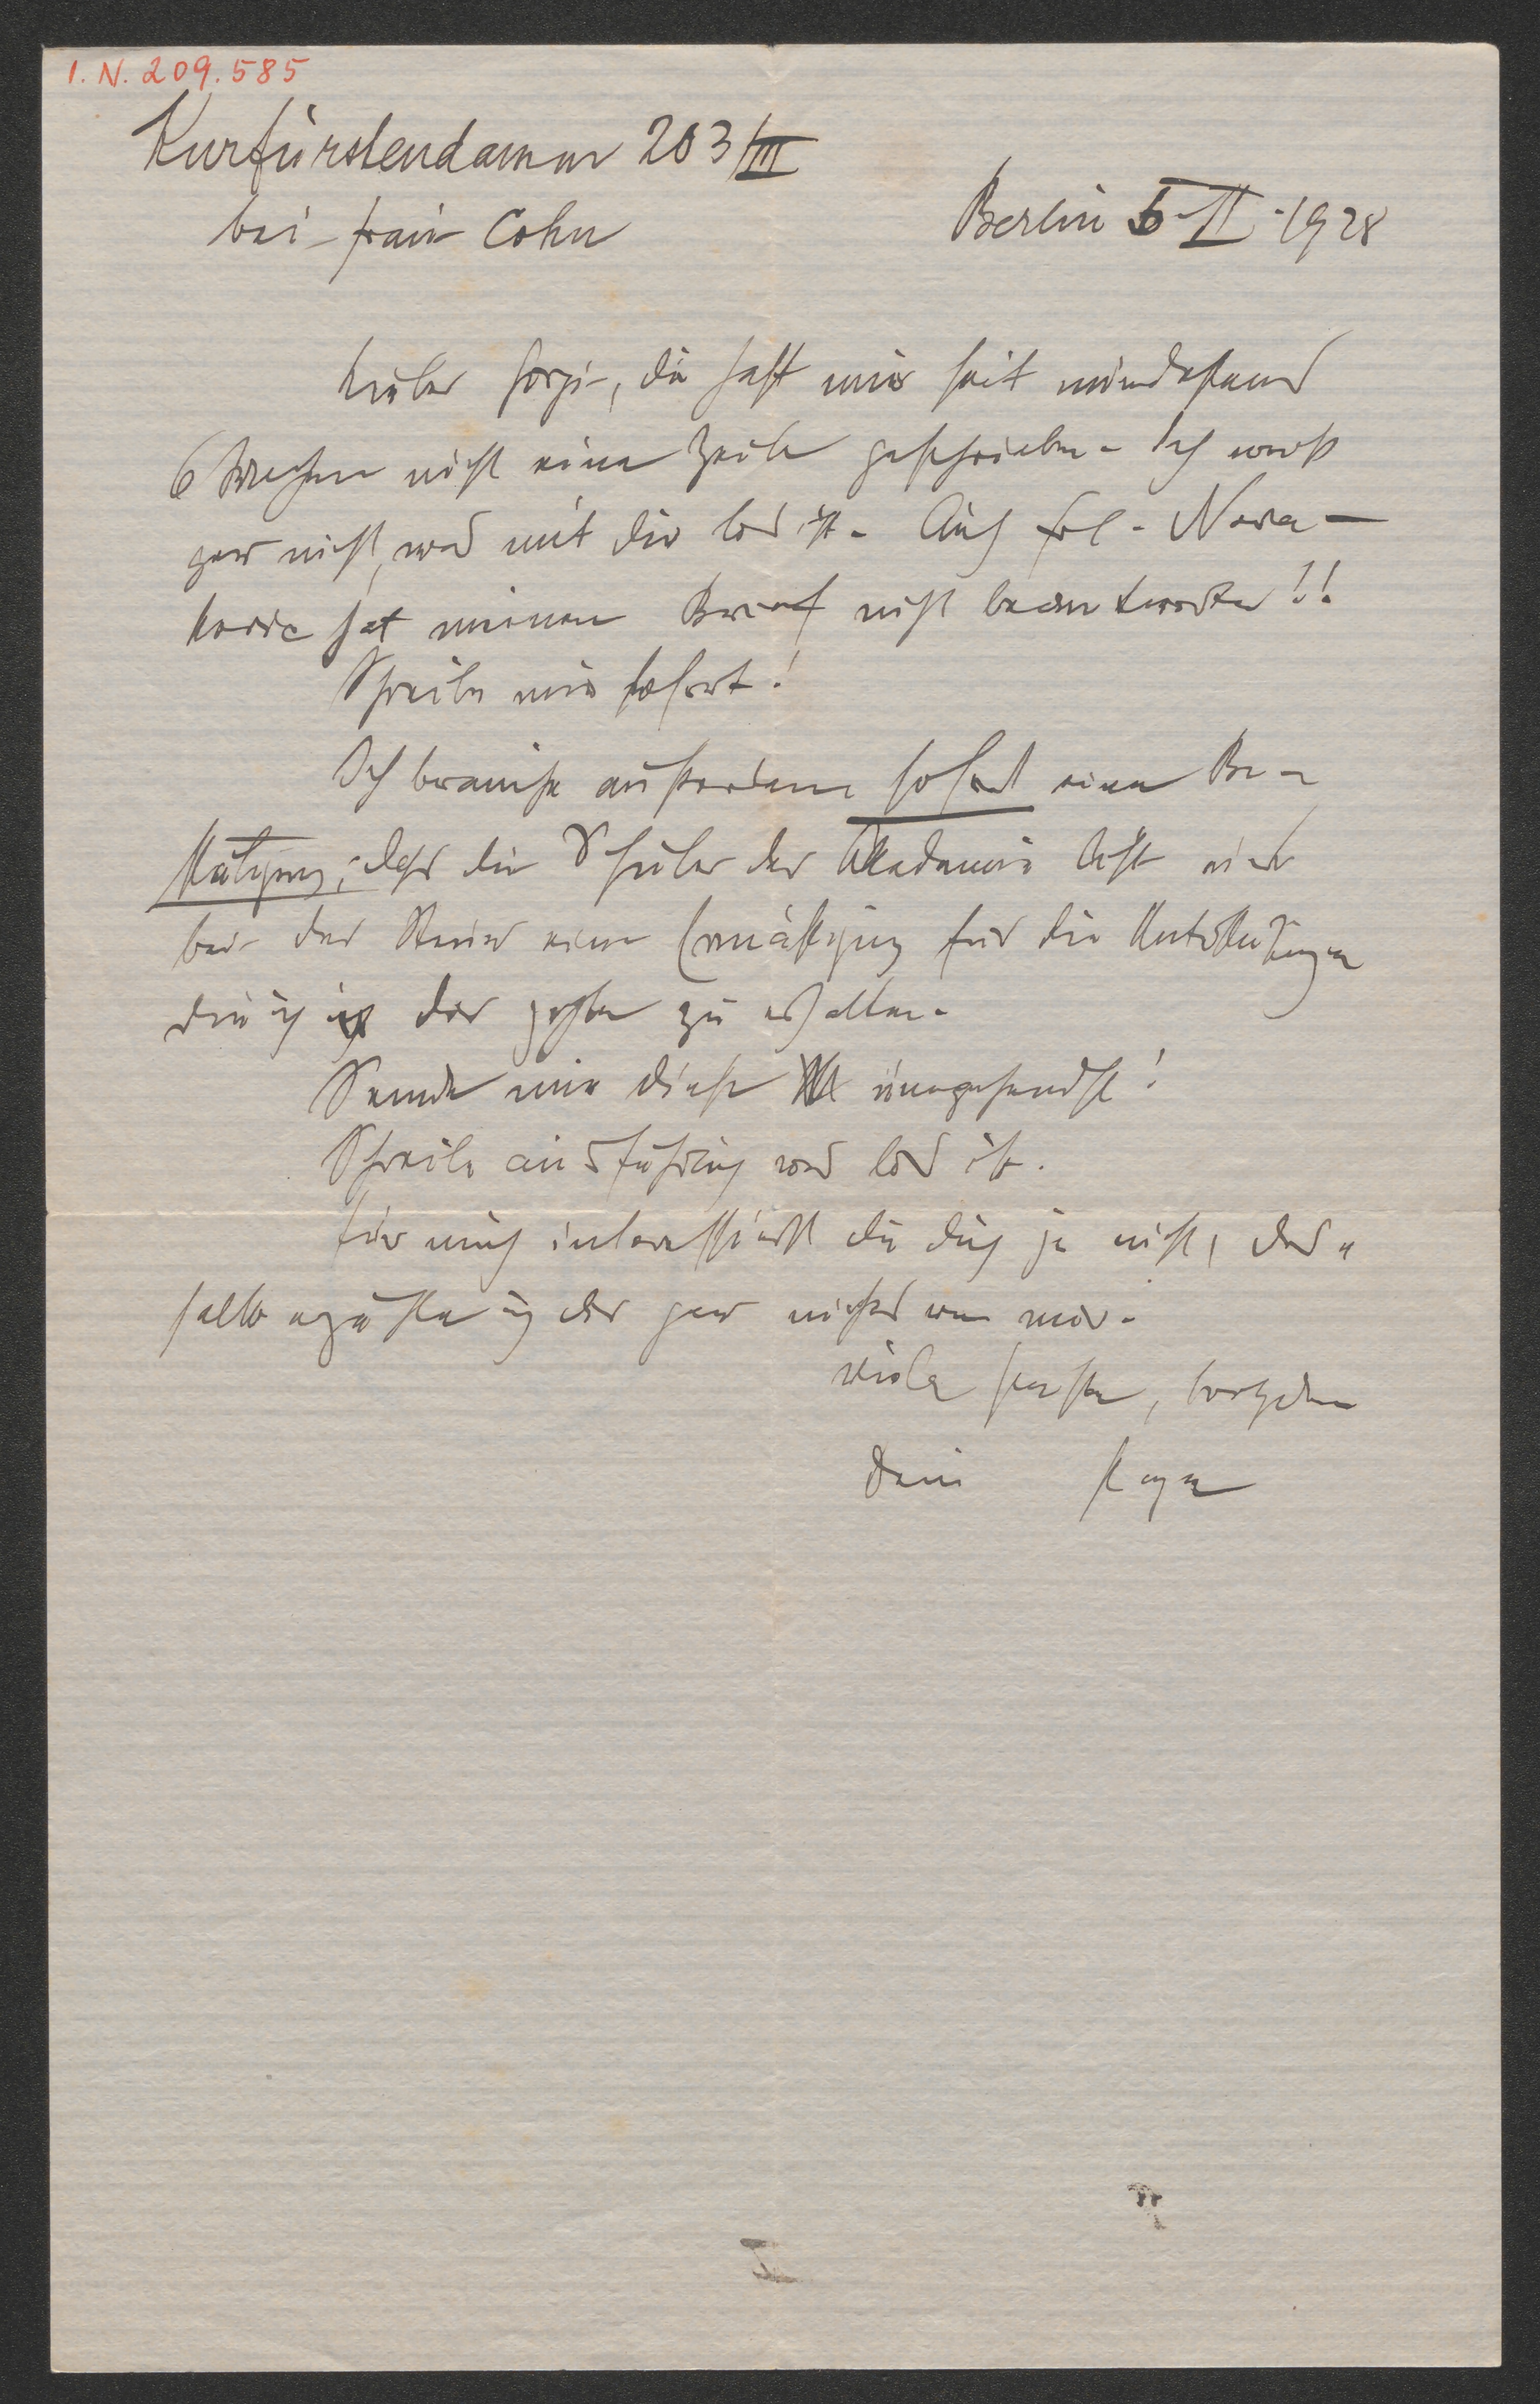 I. N. 209.585
Kurfürstendamm 203/III
bei Frau Cohn
Berlin 6-II-1928
Lieber Georg, du hast mir seit mindestens
6 Wochen nicht eine Zeile geschrieben. Ich weiß
gar nicht, was mit dir los ist. Auch Frl. Nova-
hat meinen Brief nicht beantwortet!!
Schreibe mir sofort!
Ich brauche außerdem sofort eine Be-
stätigung, daß du Schüler der Akademie bist um
bei der Steuer eine Ermäßigung für die Unterstützungen
die ich dir gebe zu erhalten.
Sende mir diese umgehendst!
Schreibe ausführlich was los ist.
Für mich interessierst du dich ja nicht, des-
halb erzähle ich dir gar nichts von mir.
Viele herzlichst
dein